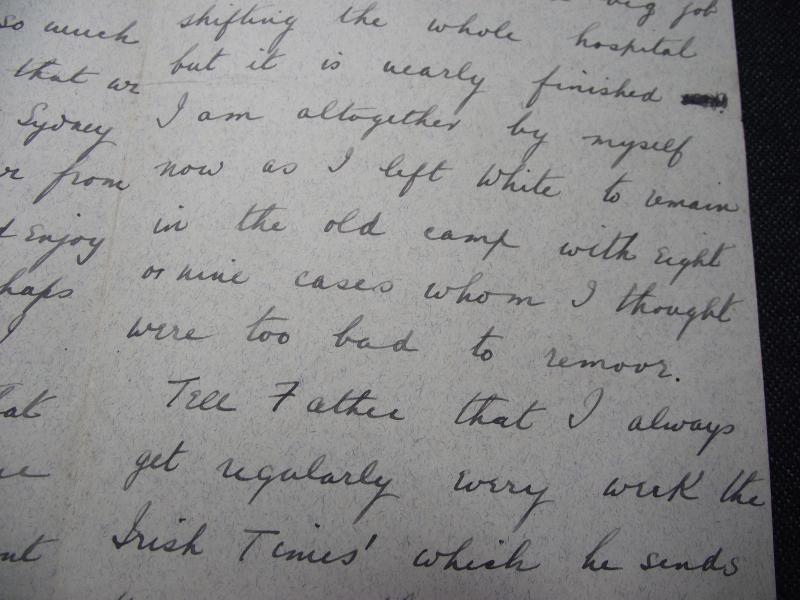 so much
that we
Sydney
from
Enjoy
haps
I
big job
shifting the whole hospital
but it is nearly finished
I am altogether by myself
now as I left White to remain
in the old camp with Eight
or nine cases whom I thought
were too bad to remove.
Tell Father that I always
get regularly every week the
Irish Times' which he sends